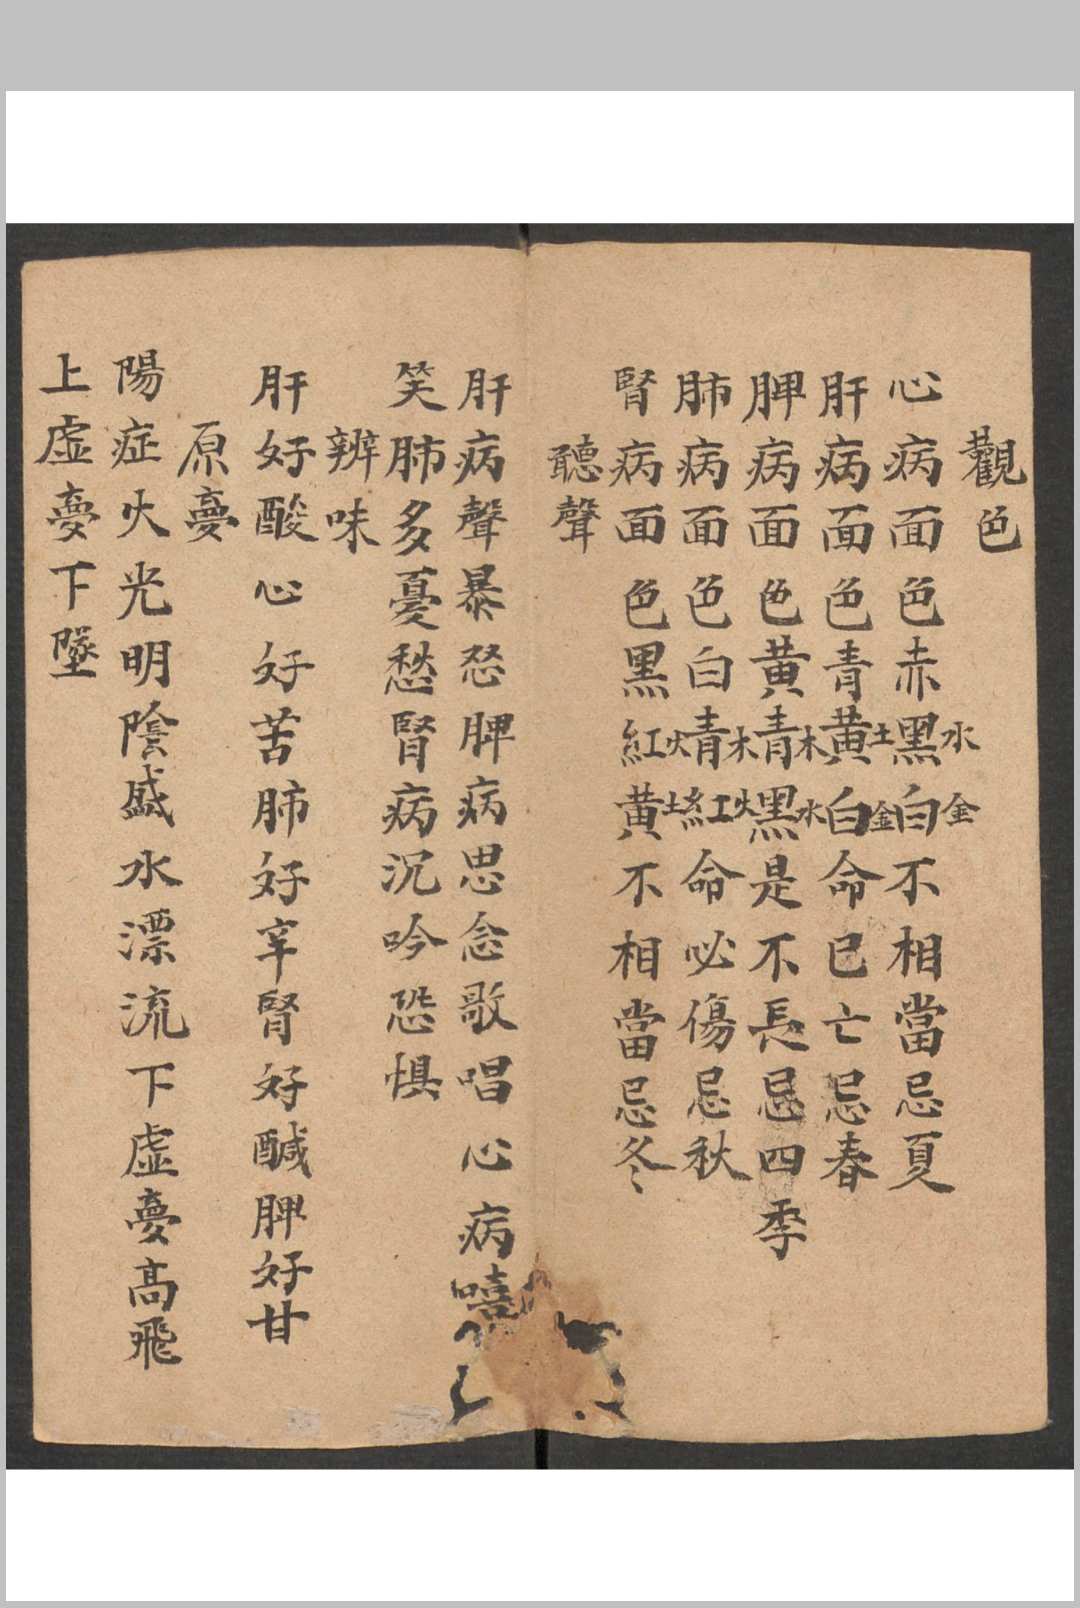 觀色
心病面色赤黑水白金不相當忌夏
肝病面色青黃土白金命已亡忌春
脾病面色黃青木黑水是不長忌四季
肺病面色白青木紅火命必傷忌秋
腎病面色黑紅火黃土不相當忌冬
聽聲
肝病聲暴怒脾病思念歌唱心病嘻
笑肺多憂愁腎病沉吟恐懼
辨味
肝好酸心好苦肺好辛腎好鹹脾好甘
原夢
陽症火光明陰盛水漂流下虛夢高飛
上虛夢下墜